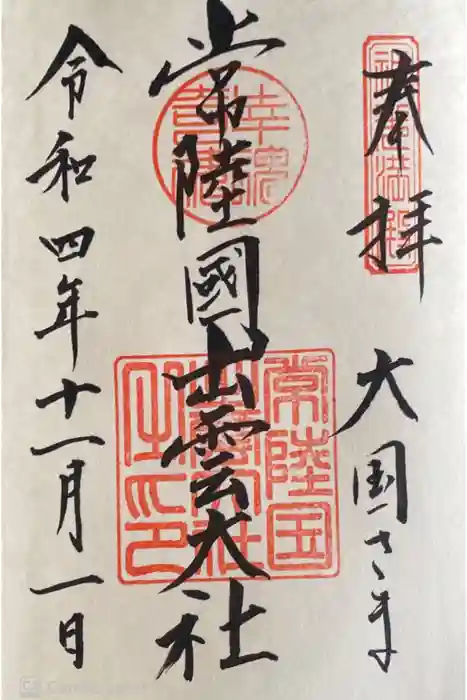 奉拝
大国さま
常陸國出雲大社
常陸国
出雲大社
之印
令和四年十一月一日